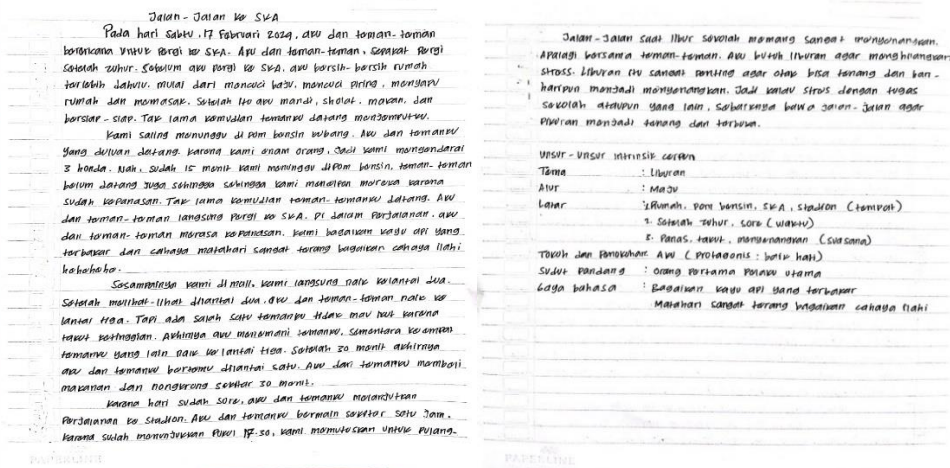 Jalan-Jalan ke SKA
Pada hari Sabtu, 17 Februari 2024, aku dan teman-teman
berencana untuk pergi ke SKA. Aku dan teman-teman, sepakat pergi
setelah zuhur. Sebelum aku pergi ke SKA, aku bersih-bersih rumah
terlebih dahulu, mulai dari mencuci baju, mencuci piring, menyapu
rumah dan memasak. Setelah itu aku mandi, sholat, makan, dan
bersiap-siap. Tak lama kemudian temanku datang menjemputku.
Kami saling menunggu di pom bensin kubang. Aku dan temanku
yang duluan datang. Karena kami enam orang, jadi kami mengendarai
3 honda. Nah, sudah 15 menit kami menunggu dipom bensin, teman-teman
belum datang juga sehingga sehingga kami menelpon mereka karena
sudah kepanasan. Tak lama kemudian teman-temanku datang. Aku
dan teman-teman langsung pergi ke SKA. Di dalam perjalanan, aku
dan teman-teman merasa kepanasan. Kami bagaikan kayu api yang
terbakar dan cahaya matahari sangat terang bagaikan cahaya Ilahi
hahahaha.
Sesampainya kami di mall, kami langsung naik kelantai dua.
Setelah melihat-lihat dilantai dua, aku dan teman-teman naik ke
lantai tiga. Tapi ada salah satu temanku tidak mau ikut karena
takut ketinggian. Akhirnya aku menemani temanku, sementara keempat
temanku yang lain naik ke lantai tiga. Setelah 30 menit akhirnya
aku dan temanku bertemu dilantai satu. Aku dan temanku membeli
makanan dan nongkrong sekitar 30 menit.
Karena hari sudah sore, aku dan temanku melanjutkan
perjalanan ke stadion. Aku dan temanku bermain sekitar satu jam.
Karena sudah menunjukkan pukul 17.30, kami memutuskan untuk pulang.
PAPERLINE
Jalan-Jalan saat libur sekolah memang sangat menyenangkan.
Apalagi bersama teman-teman. Aku butuh liburan agar menghilangkan
stress. Liburan itu sangat penting agar otak bisa tenang dan hari-
haripun menjadi menyenangkan. Jadi kalau stres dengan tugas
sekolah ataupun yang lain, sebaiknya bawa jalan-jalan agar
pikiran menjadi tenang dan terbuka.
Unsur-unsur intrinsik cerpen
Tema : Liburan
Alur : Maju
Latar : 1. Rumah, pom bensin, SKA, stadion (tempat)
2. Setelah zuhur, sore (waktu)
3. Panas, takut, menyenangkan (suasana)
Tokoh dan Penokohan: Aku (Protagonis: baik hati)
Sudut Pandang : Orang pertama pelaku utama
Gaya bahasa : Bagaikan kayu api yang terbakar
Matahari sangat terang bagaikan cahaya Ilahi
PAPERLINE